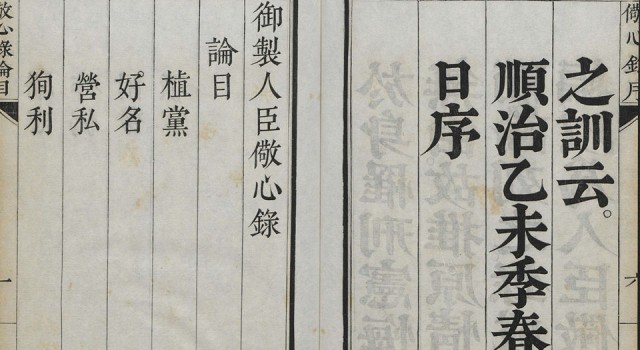 儆心錄
之訓云。
順治乙未季春
日序
御製人臣儆心錄
論目
植黨
好名
營私
狥利
儆心錄論目
一